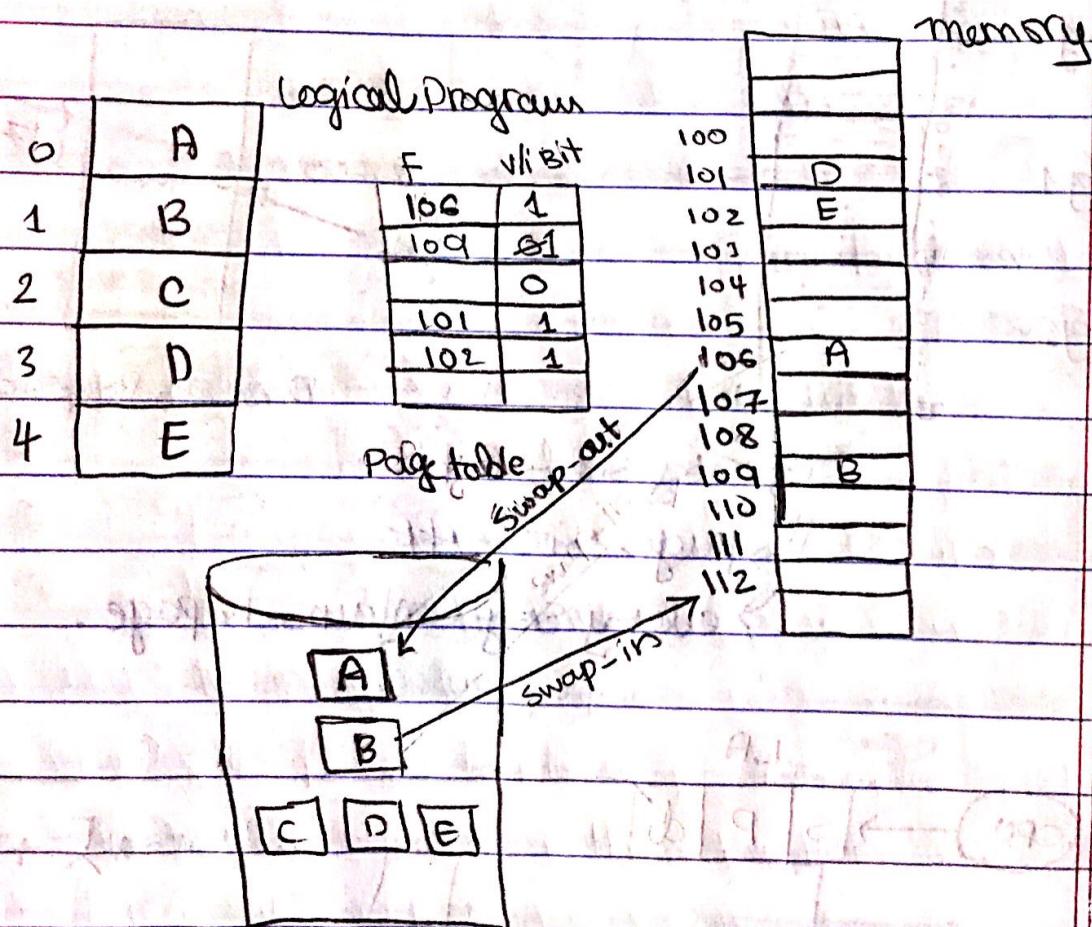 memory
Logical Program
0 A
1 B
2 C
3 D
4 E
F V/i Bit
106 1
109 01
0
101 1
102 1
Page table
100
101 D
102 E
103
104
105
106 A
107
108
109 B
110
111
112
swap-out
swap-in
A
B
C D E